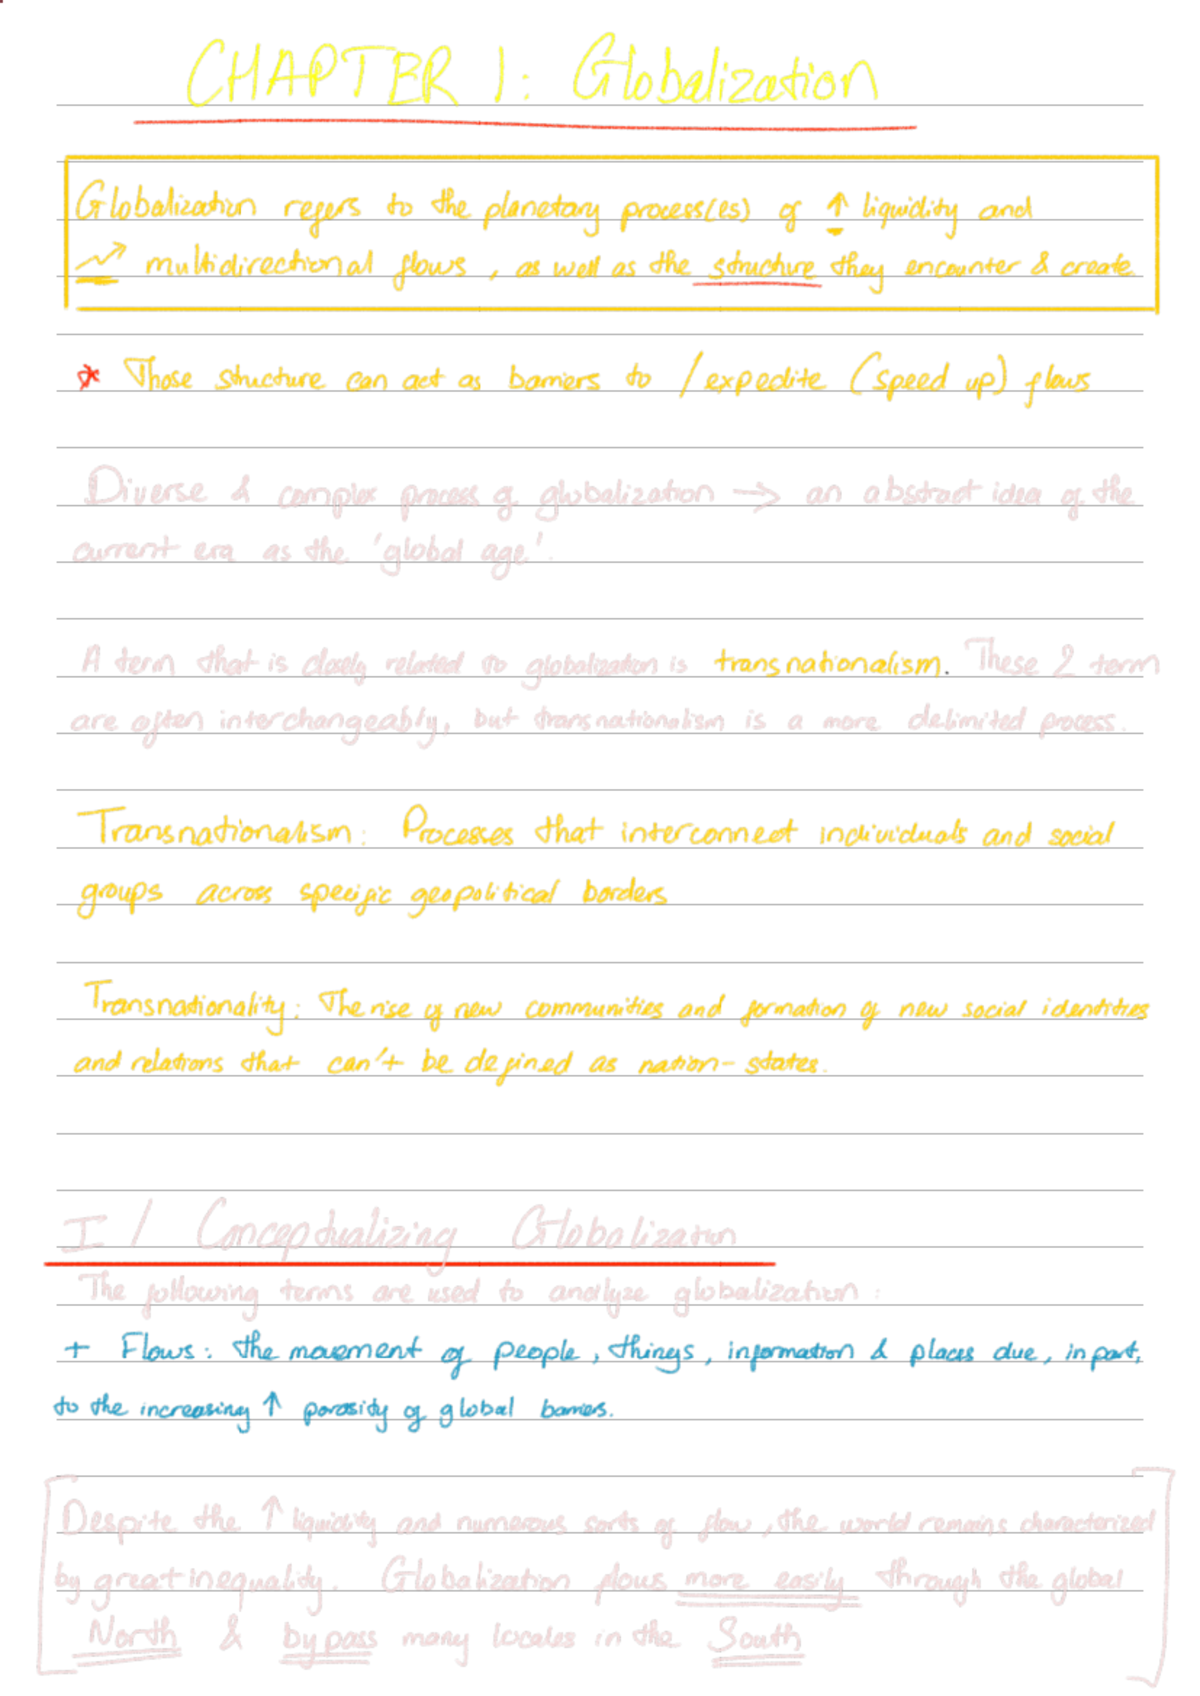 CHAPTER 1: Globalization
Globalization refers to the planetary process(es) of ↑ liquidity and
multidirectional flows, as well as the structure they encounter & create
* Those structure can act as barriers to / expedite (speed up) flows
Diverse & complex process of globalization → an abstract idea of the
current era as the 'global age'.
A term that is closely related to globalization is transnationalism. These 2 term
are often interchangeably, but transnationalism is a more delimited process.
Transnationalism: Processes that interconnect individuals and social
groups across specific geopolitical borders
Transnationality: The rise of new communities and formation of new social identities
and relations that can't be defined as nation-states.
I / Conceptualizing Globalization
The following terms are used to analyze globalization:
+ Flows: the movement of people, things, information & places due, in part,
to the increasing ↑ porosity of global barriers.
Despite the ↑ liquidity and numerous sorts of flow, the world remains characterized
by great inequality. Globalization flows more easily through the global
North & bypass many locales in the South